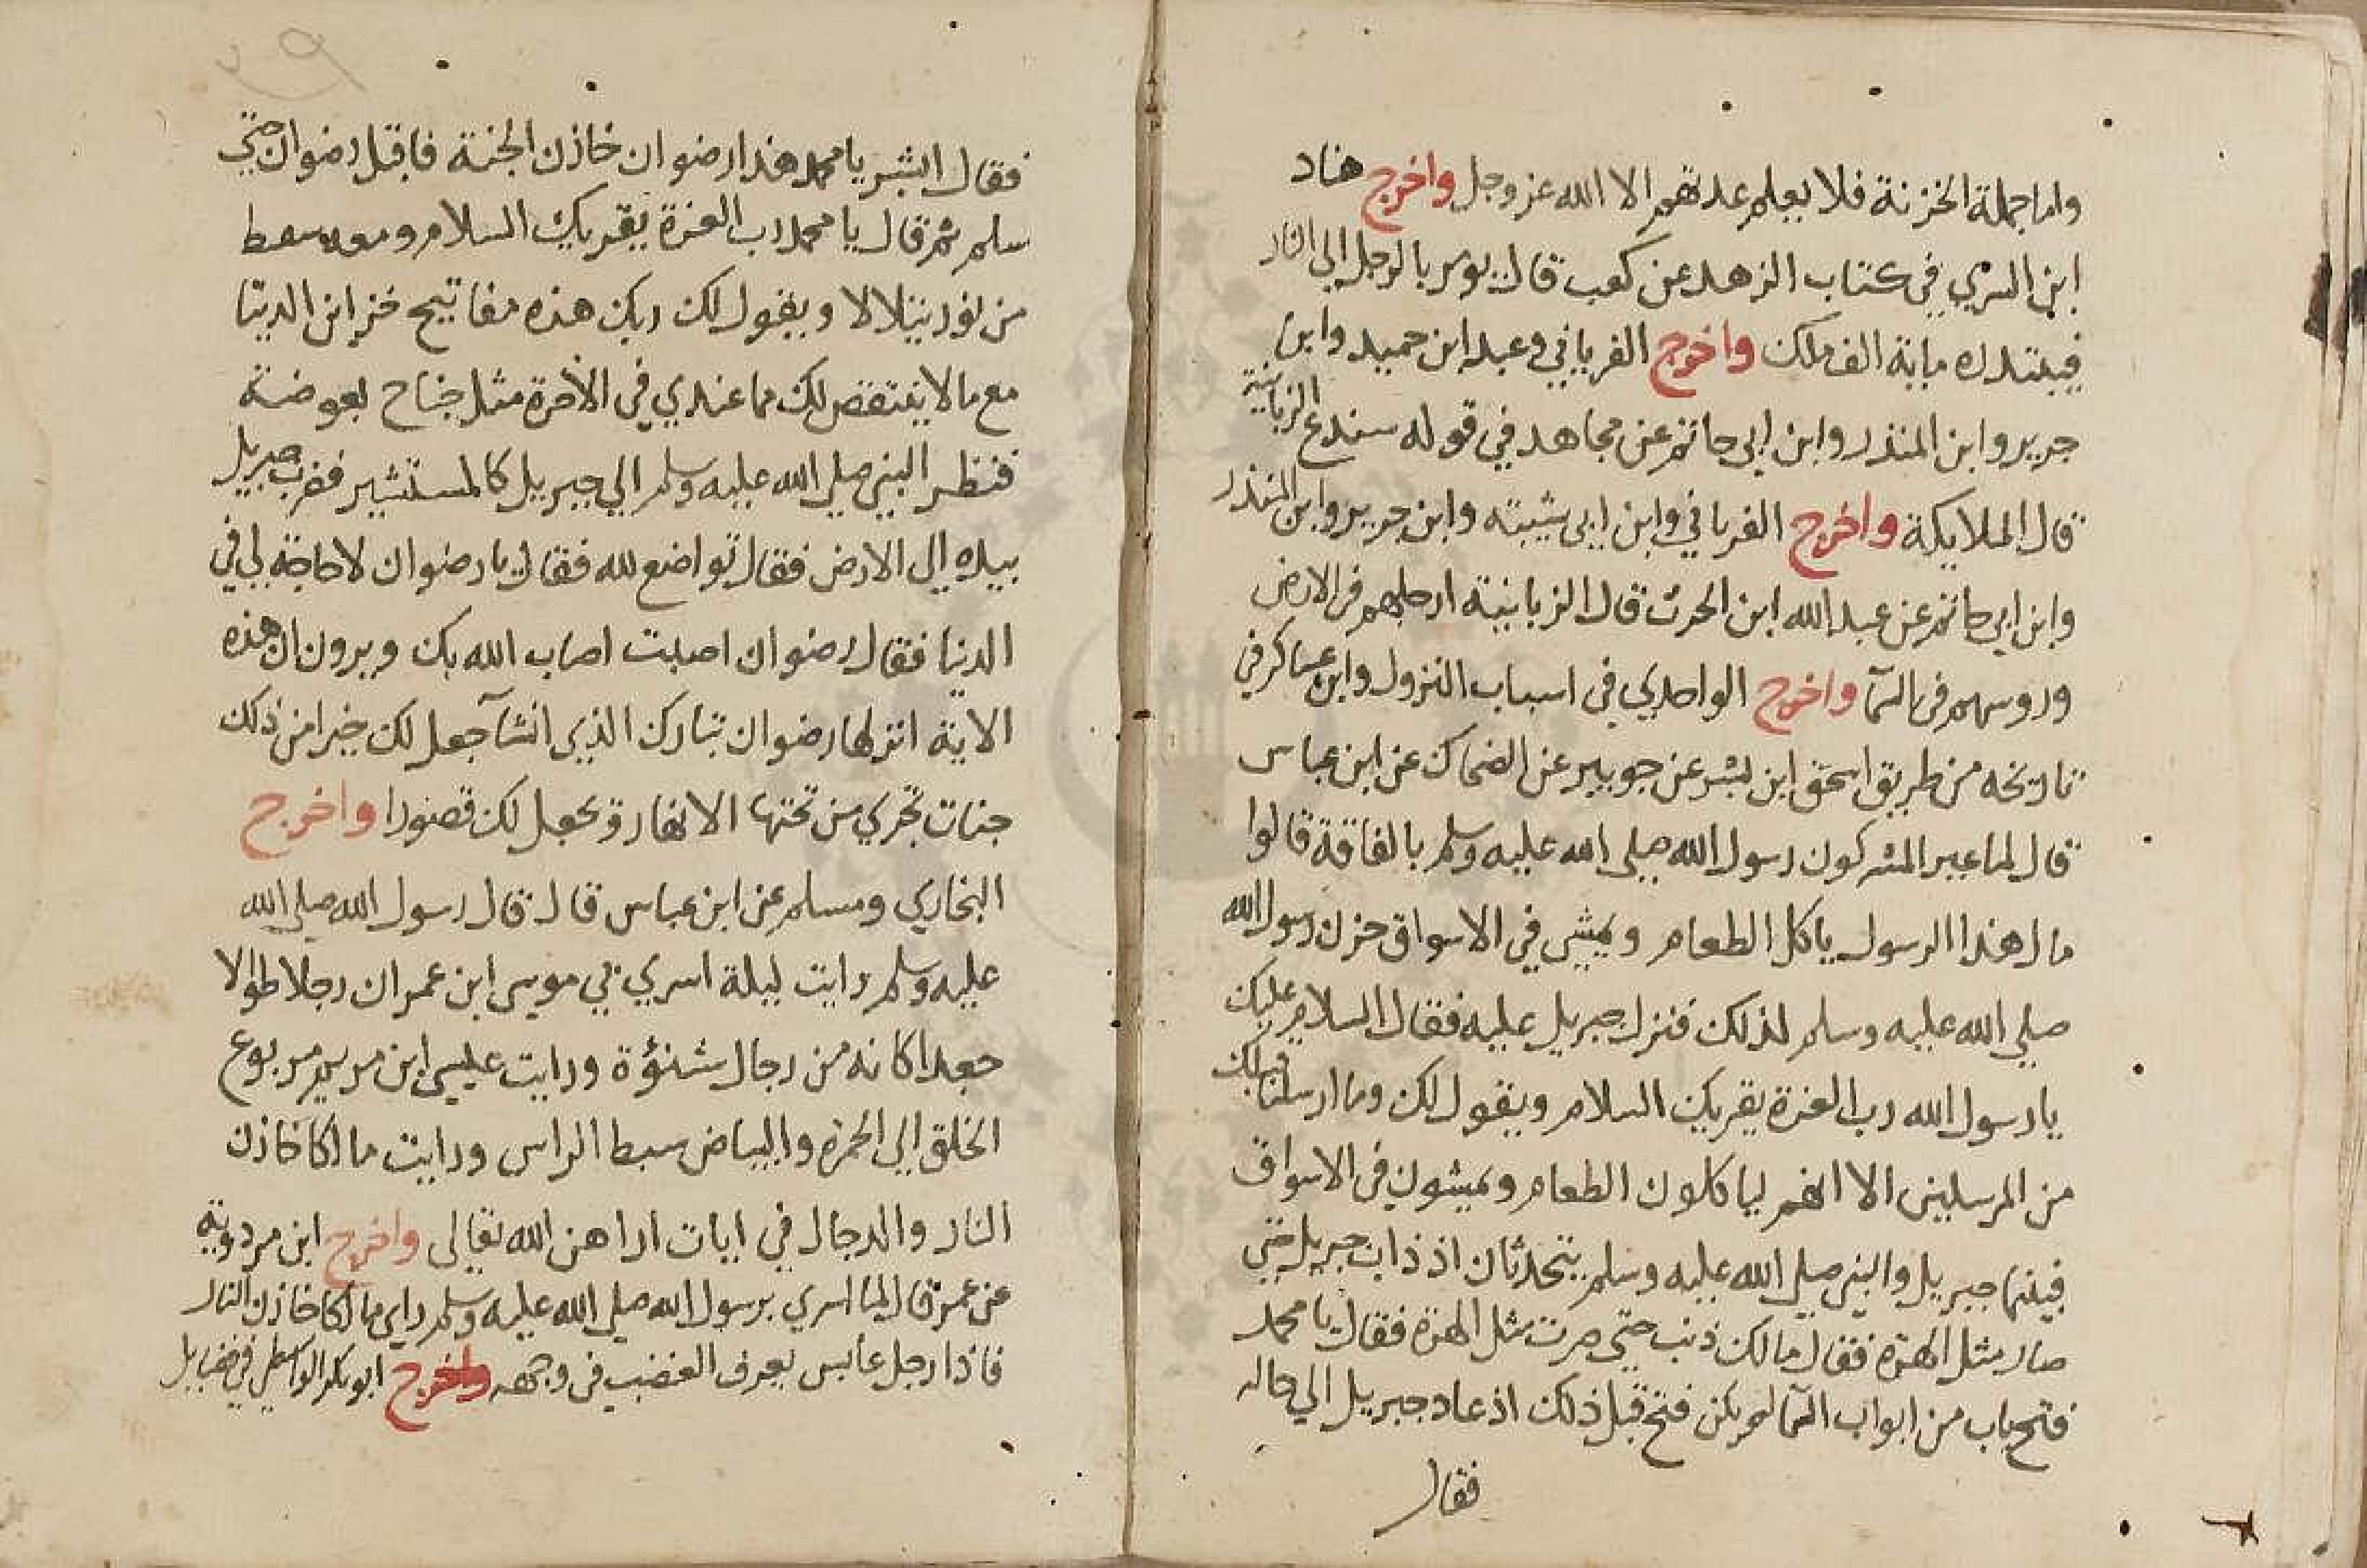 واما جملة الخزنة فلا يعلم عدتهم الا الله عز وجل واخرج هناد
ابن السري في كتاب الزهد عن كعب قال يومر بالرجل الي النار
فيبتدره ماية الف ملك واخرج الفريابي وعبد ابن حميد وابن
جرير وابن المنذر وابن ابي حاتم عن مجاهد في قوله سندع الزبانية
قال الملايكة واخرج الفريابي وابن ابي شيبة وابن جرير وابن المنذر
وابن ابي حاتم عن عبد الله ابن الحرث قال الزبانية ارجلهم في الارض
وروسهم في السما واخرج الواحدي في اسباب النزول وابن عساكر في
تاريخه من طريق اسحق ابن بشر عن جويبر عن الضحاك عن ابن عباس
قال لما عير المشركون رسول الله صلى الله عليه وسلم بالفاقة قالوا
مال هذا الرسول ياكل الطعام ويمشي في الاسواق حزن رسول الله
صلي الله عليه وسلم لذلك فنزل جبريل عليه فقال السلام عليك
يا رسول الله رب العزة يقريك السلام ويقول لك وما ارسلنا قبلك
من المرسلين الا انهم لياكلون الطعام ويمشون في الاسواق
فبينما جبريل والنبي صلي الله عليه وسلم يتحدثان اذ ذاب جبريل حتي
صار مثل الهرة فقال مالك ذبت حتى صرت مثل الهرة فقال يا محمد
فتح باب من ابواب السما لم يكن فتح قبل ذلك اذ عاد جبريل الي حاله
فقال
فقال ابشر يا محمد هذا رضوان خازن الجنة فاقبل رضوان حتي
سلم ثم قال يا محمد رب العزة يقريك السلام ومعه سفط
من نور يتلالا ويقول لك ربك هذه مفاتيح خزاين الدنيا
مع مالا ينتقص لك مما عندي في الاخرة مثل جناح بعوضة
فنظر النبي صلي الله عليه وسلم الي جبريل كالمستشير فضرب جبريل
بيده الي الارض فقال تواضع لله فقال يا رضوان لا حاجة لي في
الدنيا فقال رضوان اصبت اصاب الله بك ويرون ان هذه
الاية انزلها رضوان تبارك الذي انشآ جعل لك خيرا من ذلك
جنات تجري من تحتها الانهار ويجعل لك قصورا واخرج
البخاري ومسلم عن ابن عباس قال قال رسول الله صلي الله
عليه وسلم رايت ليلة اسري بي موسي ابن عمران رجلا طوالا
جعدا كانه من رجال شنؤة ورايت عيسى ابن مريم مربوع
الخلق الي الحمرة والبياض سبط الراس ورايت مالكا خازن
النار والدجال في ايات اراهن الله تعالى واخرج ابن مردوية
عن عمر قال لما اسري برسول الله صلي الله عليه وسلم راي مالكا خازن النار
فاذا رجل عابس يعرف الغضب في وجهه واخرج ابو بكر الواسطي في فضايل